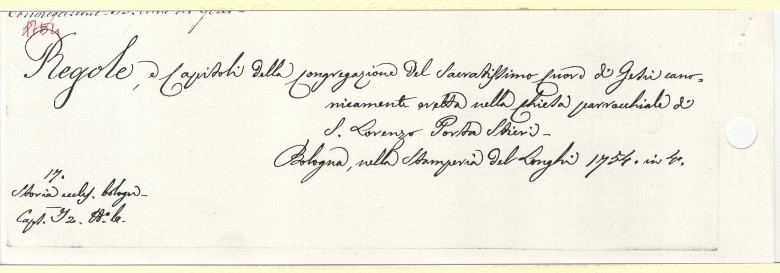 1754
Regole, e Capitoli della Congregazione del Sacratissimo Cuore di Gesù cano=
nicamente eretta nella Chiesa parrocchiale di
S. Lorenzo Porta Stieri -
Bologna, nella Stamperia del Longhi 1754. in 4.
17.
Storia eccles. bologn-
Capt. 72.